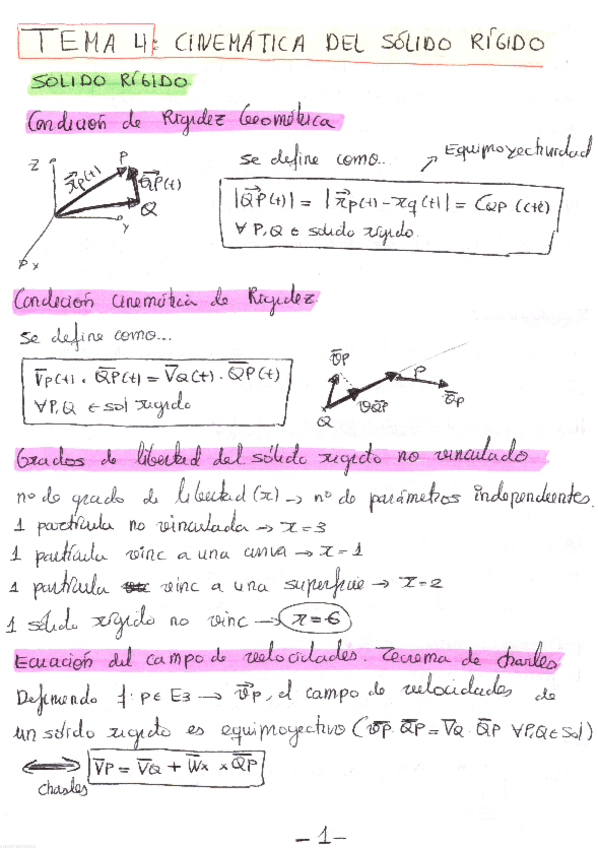 TEMA 4: CINEMÁTICA DEL SÓLIDO RÍGIDO
SOLIDO RÍGIDO
Condición de Rigidez Geométrica
Z
P
x⃗p(t)
QP⃗(t)
Q
y
x
se define como...
Equiproyectividad
|QP⃗(t)| = |x⃗p(t) - xq(t)| = CQP (cte)
∀ P,Q ∈ sólido rígido.
Condición cinemática de Rigidez
se define como...
V̄p(t) · Q̄P̄(t) = V̄Q(t) · Q̄P̄(t)
∀P,Q ∈ sol rígido
v̄p
P
v̄p
vQ̄P̄
Q
Grados de libertad del sólido rígido no vinculado
nº de grado de libertad (x) → nº de parámetros independientes.
1 partícula no vinculada → x=3
1 partícula vinc a una curva → x=1
1 partícula vinc a una superficie → x=2
1 sólido rígido no vinc → x=6
Ecuación del campo de velocidades. Teorema de Charles
Definiendo f: P∈E3 → v⃗p, el campo de velocidades de
un sólido rígido es equiproyectivo (v̄p · Q̄P̄ = V̄Q · Q̄P̄ ∀P,Q∈Sol)
⟷ V̄p = V̄Q + W̄x × Q̄P̄
Charles
-1-